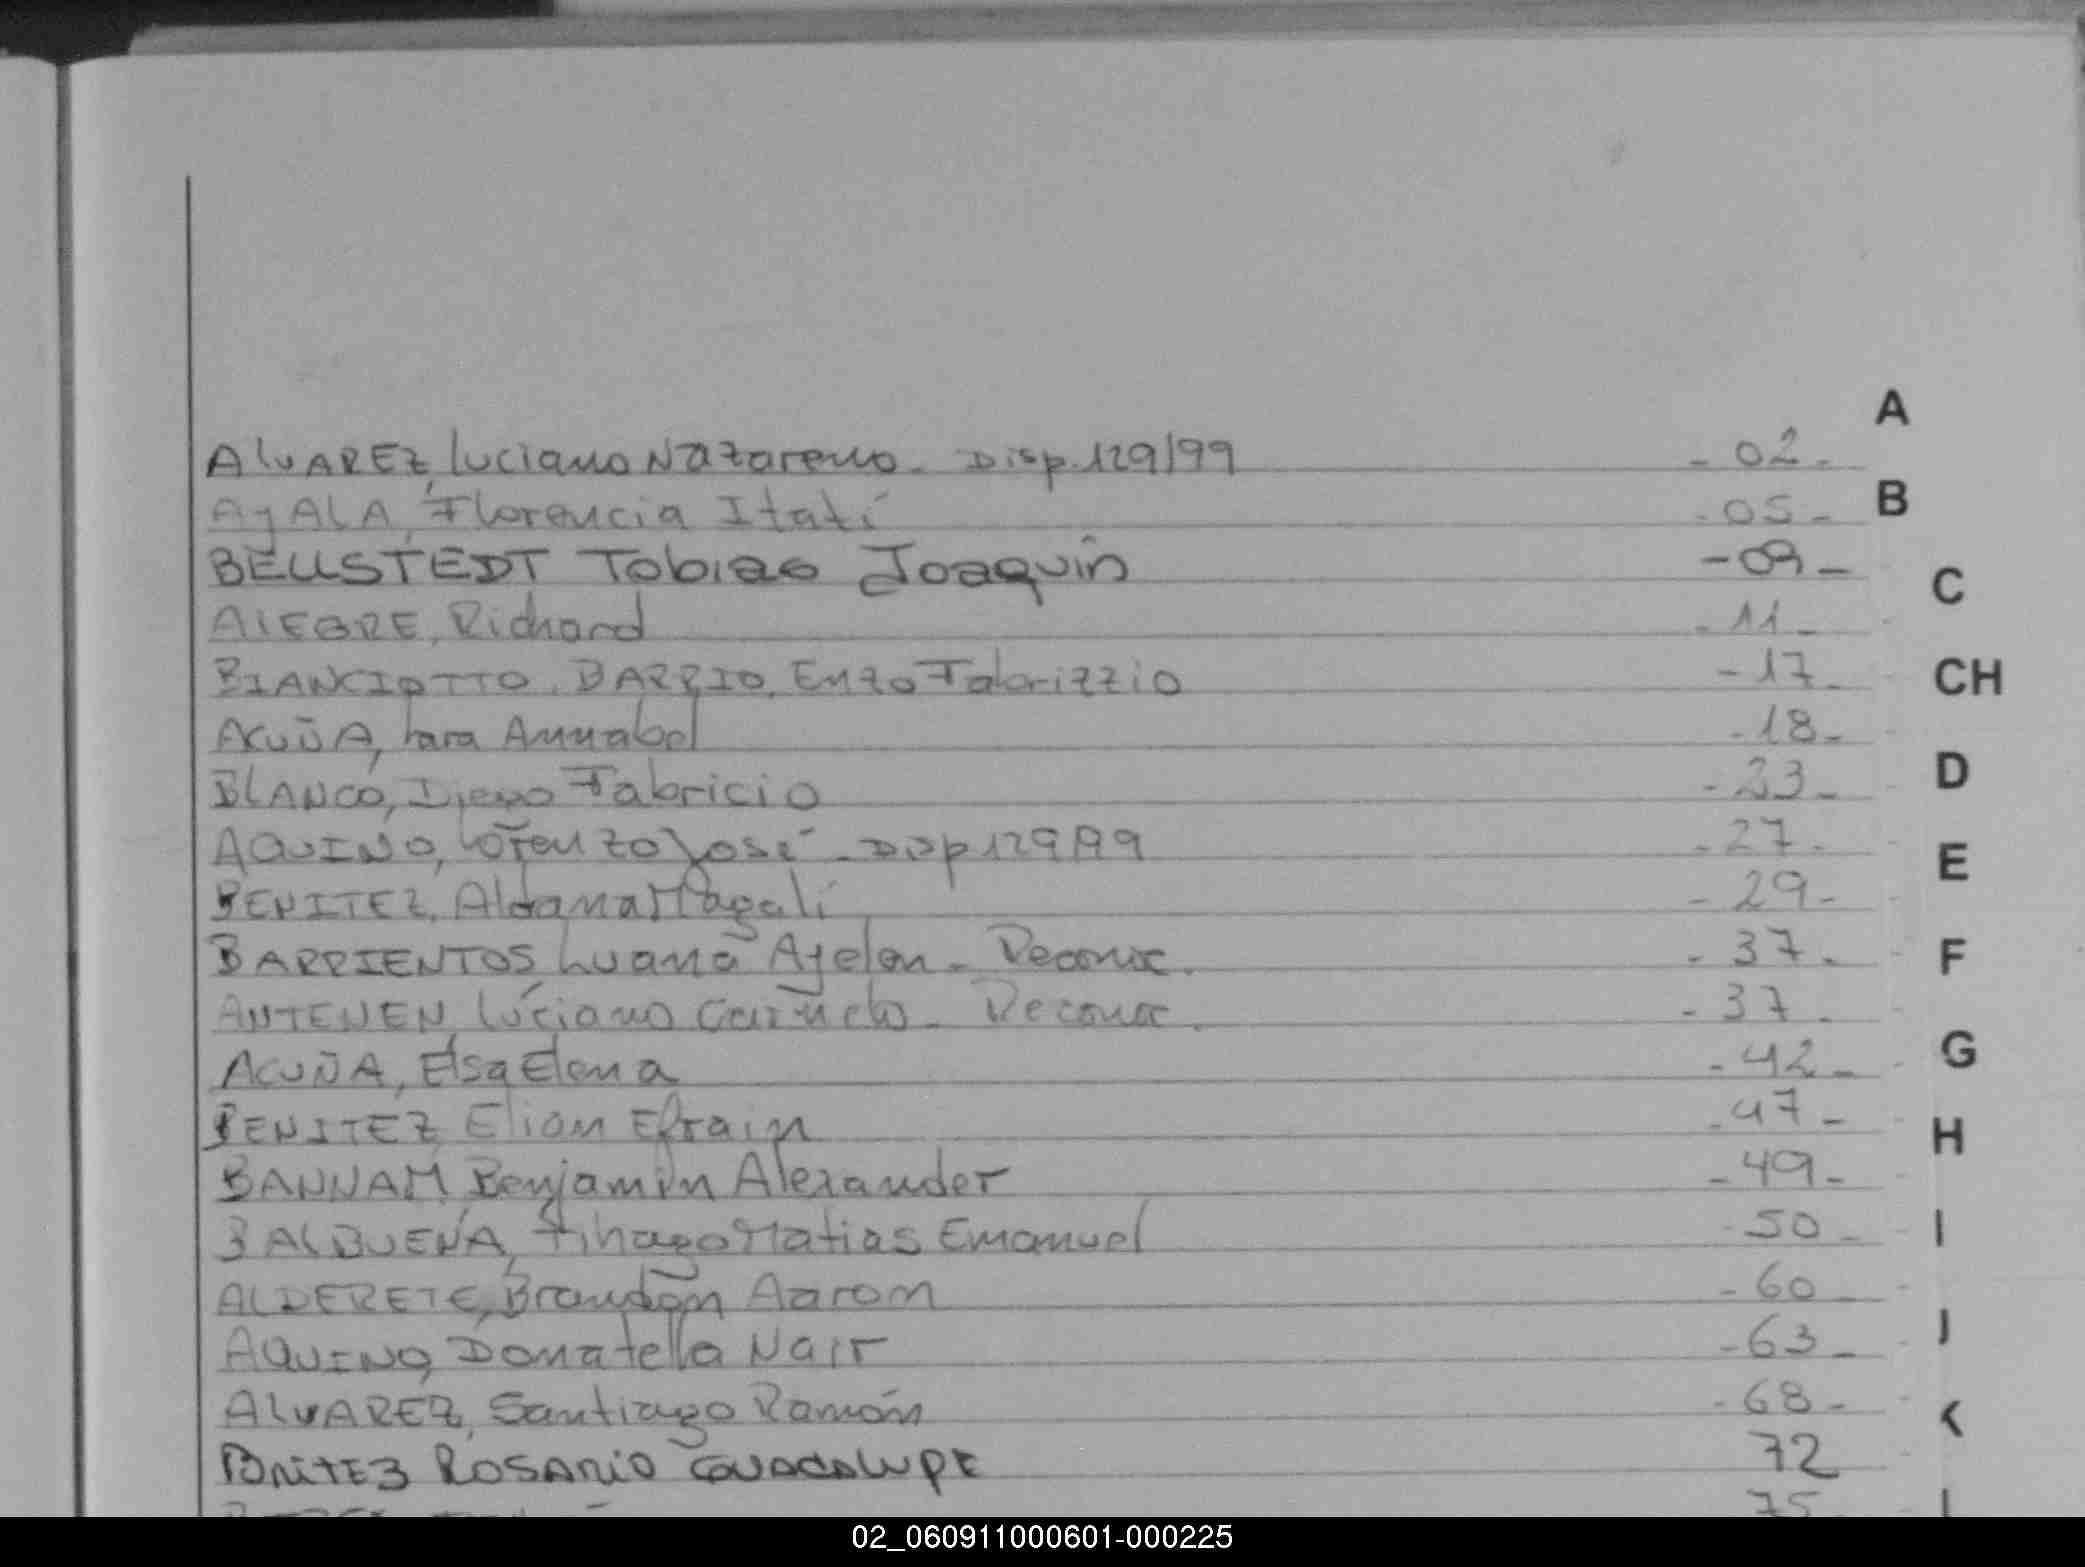 ALVAREZ, Luciano Nazareno - Disp. 129/99 - 02 -
A
AyALA, Florencia Itatí - 05 -
B
BEUSTEDT Tobias Joaquín - 09 -
C
ALEGRE, Richard - 11 -
BIANCIOTTO BARRIO, Enzo Fabrizzio - 17 -
CH
ACUÑA, Iara Annabel - 18 -
BLANCO, Diego Fabricio - 23 -
D
AQUINO, Lorenzo José - Disp 129/99 - 27 -
E
BENITEZ, Aldana Magalí - 29 -
BARRIENTOS Luana Ayelen - Reconoc. - 37 -
F
ANTENEN, Luciano - Reconoc. - 37 -
ACUÑA, Elsa Elena - 42 -
G
BENITEZ Elian Efrain - 47 -
H
BANNAM, Benjamín Alexander - 49 -
BALBUENA, Tihago Matias Emanuel - 50 -
I
ALDERETE, Brandon Aaron - 60 -
AQUINO, Donatella Nair - 63 -
J
ALVAREZ, Santiago Ramón - 68 -
K
BRITEZ ROSARIO GUADALUPE 72
75
02_060911000601-000225